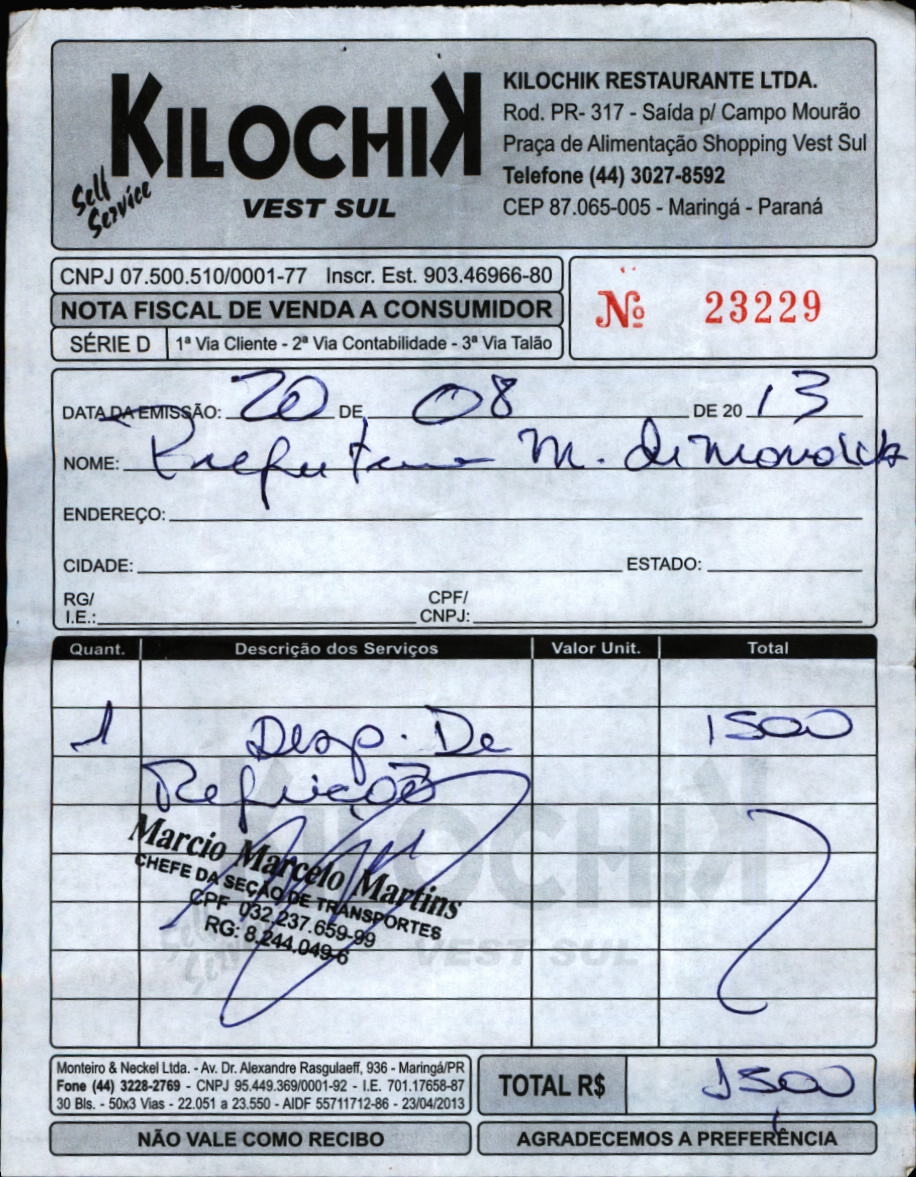 KILOCHIK
Self Service
VEST SUL
KILOCHIK RESTAURANTE LTDA.
Rod. PR- 317 - Saída p/ Campo Mourão
Praça de Alimentação Shopping Vest Sul
Telefone (44) 3027-8592
CEP 87.065-005 - Maringá - Paraná
CNPJ 07.500.510/0001-77 Inscr. Est. 903.46966-80
NOTA FISCAL DE VENDA A CONSUMIDOR
SÉRIE D 1ª Via Cliente - 2ª Via Contabilidade - 3ª Via Talão
Nº 23229
DATA DA EMISSÃO: 20 DE 08 DE 20 13
NOME: M. de
ENDEREÇO:
CIDADE: ESTADO:
RG/ I.E.: CPF/ CNPJ:
Quant. Descrição dos Serviços Valor Unit. Total
1 Desp. De 1500
Refeições
Marcio Marcelo Martins
CHEFE DA SEÇÃO DE TRANSPORTES
CPF 032.237.659-99
RG: 8.244.049-6
KILOCHIK
Self Service
VEST SUL
Monteiro & Neckel Ltda. - Av. Dr. Alexandre Rasgulaeff, 936 - Maringá/PR
Fone (44) 3228-2769 - CNPJ 95.449.369/0001-92 - I.E. 701.17658-87
30 Bls. - 50x3 Vias - 22.051 a 23.550 - AIDF 55711712-86 - 23/04/2013
TOTAL R$ 1500
NÃO VALE COMO RECIBO
AGRADECEMOS A PREFERÊNCIA